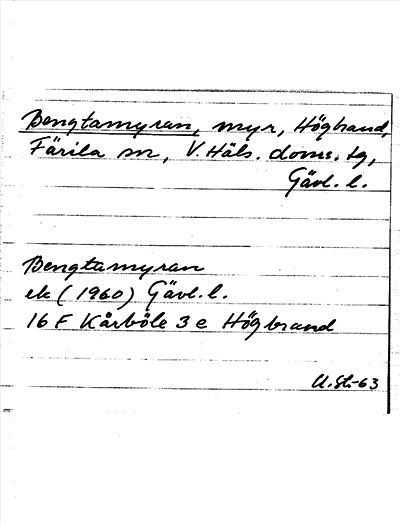 Bengtamyran, myr, Högbrand,
Färila sn, V. Häls. doms. tg,
Gävl. l.
Bengtamyran
ek (1960) Gävl. l.
16 F Kårböle 3 e Högbrand
U.St.-63